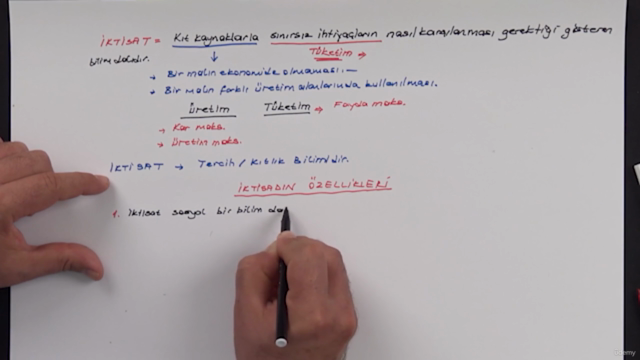 İKTİSAT = Kıt kaynaklarla sınırsız ihtiyaçların nasıl karşılanması gerektiğini gösteren
bilim dalıdır.
Tüketim →
→ Bir malın ekonomide olmaması. —
→ Bir malın farklı üretim alanlarında kullanılması.
Üretim Tüketim → Fayda maks.
→ Kar maks.
→ Üretim maks.
İKTİSAT → Tercih / Kıtlık Bilimidir.
İKTİSADIN ÖZELLİKLERİ
1. İktisat sosyal bir bilim da